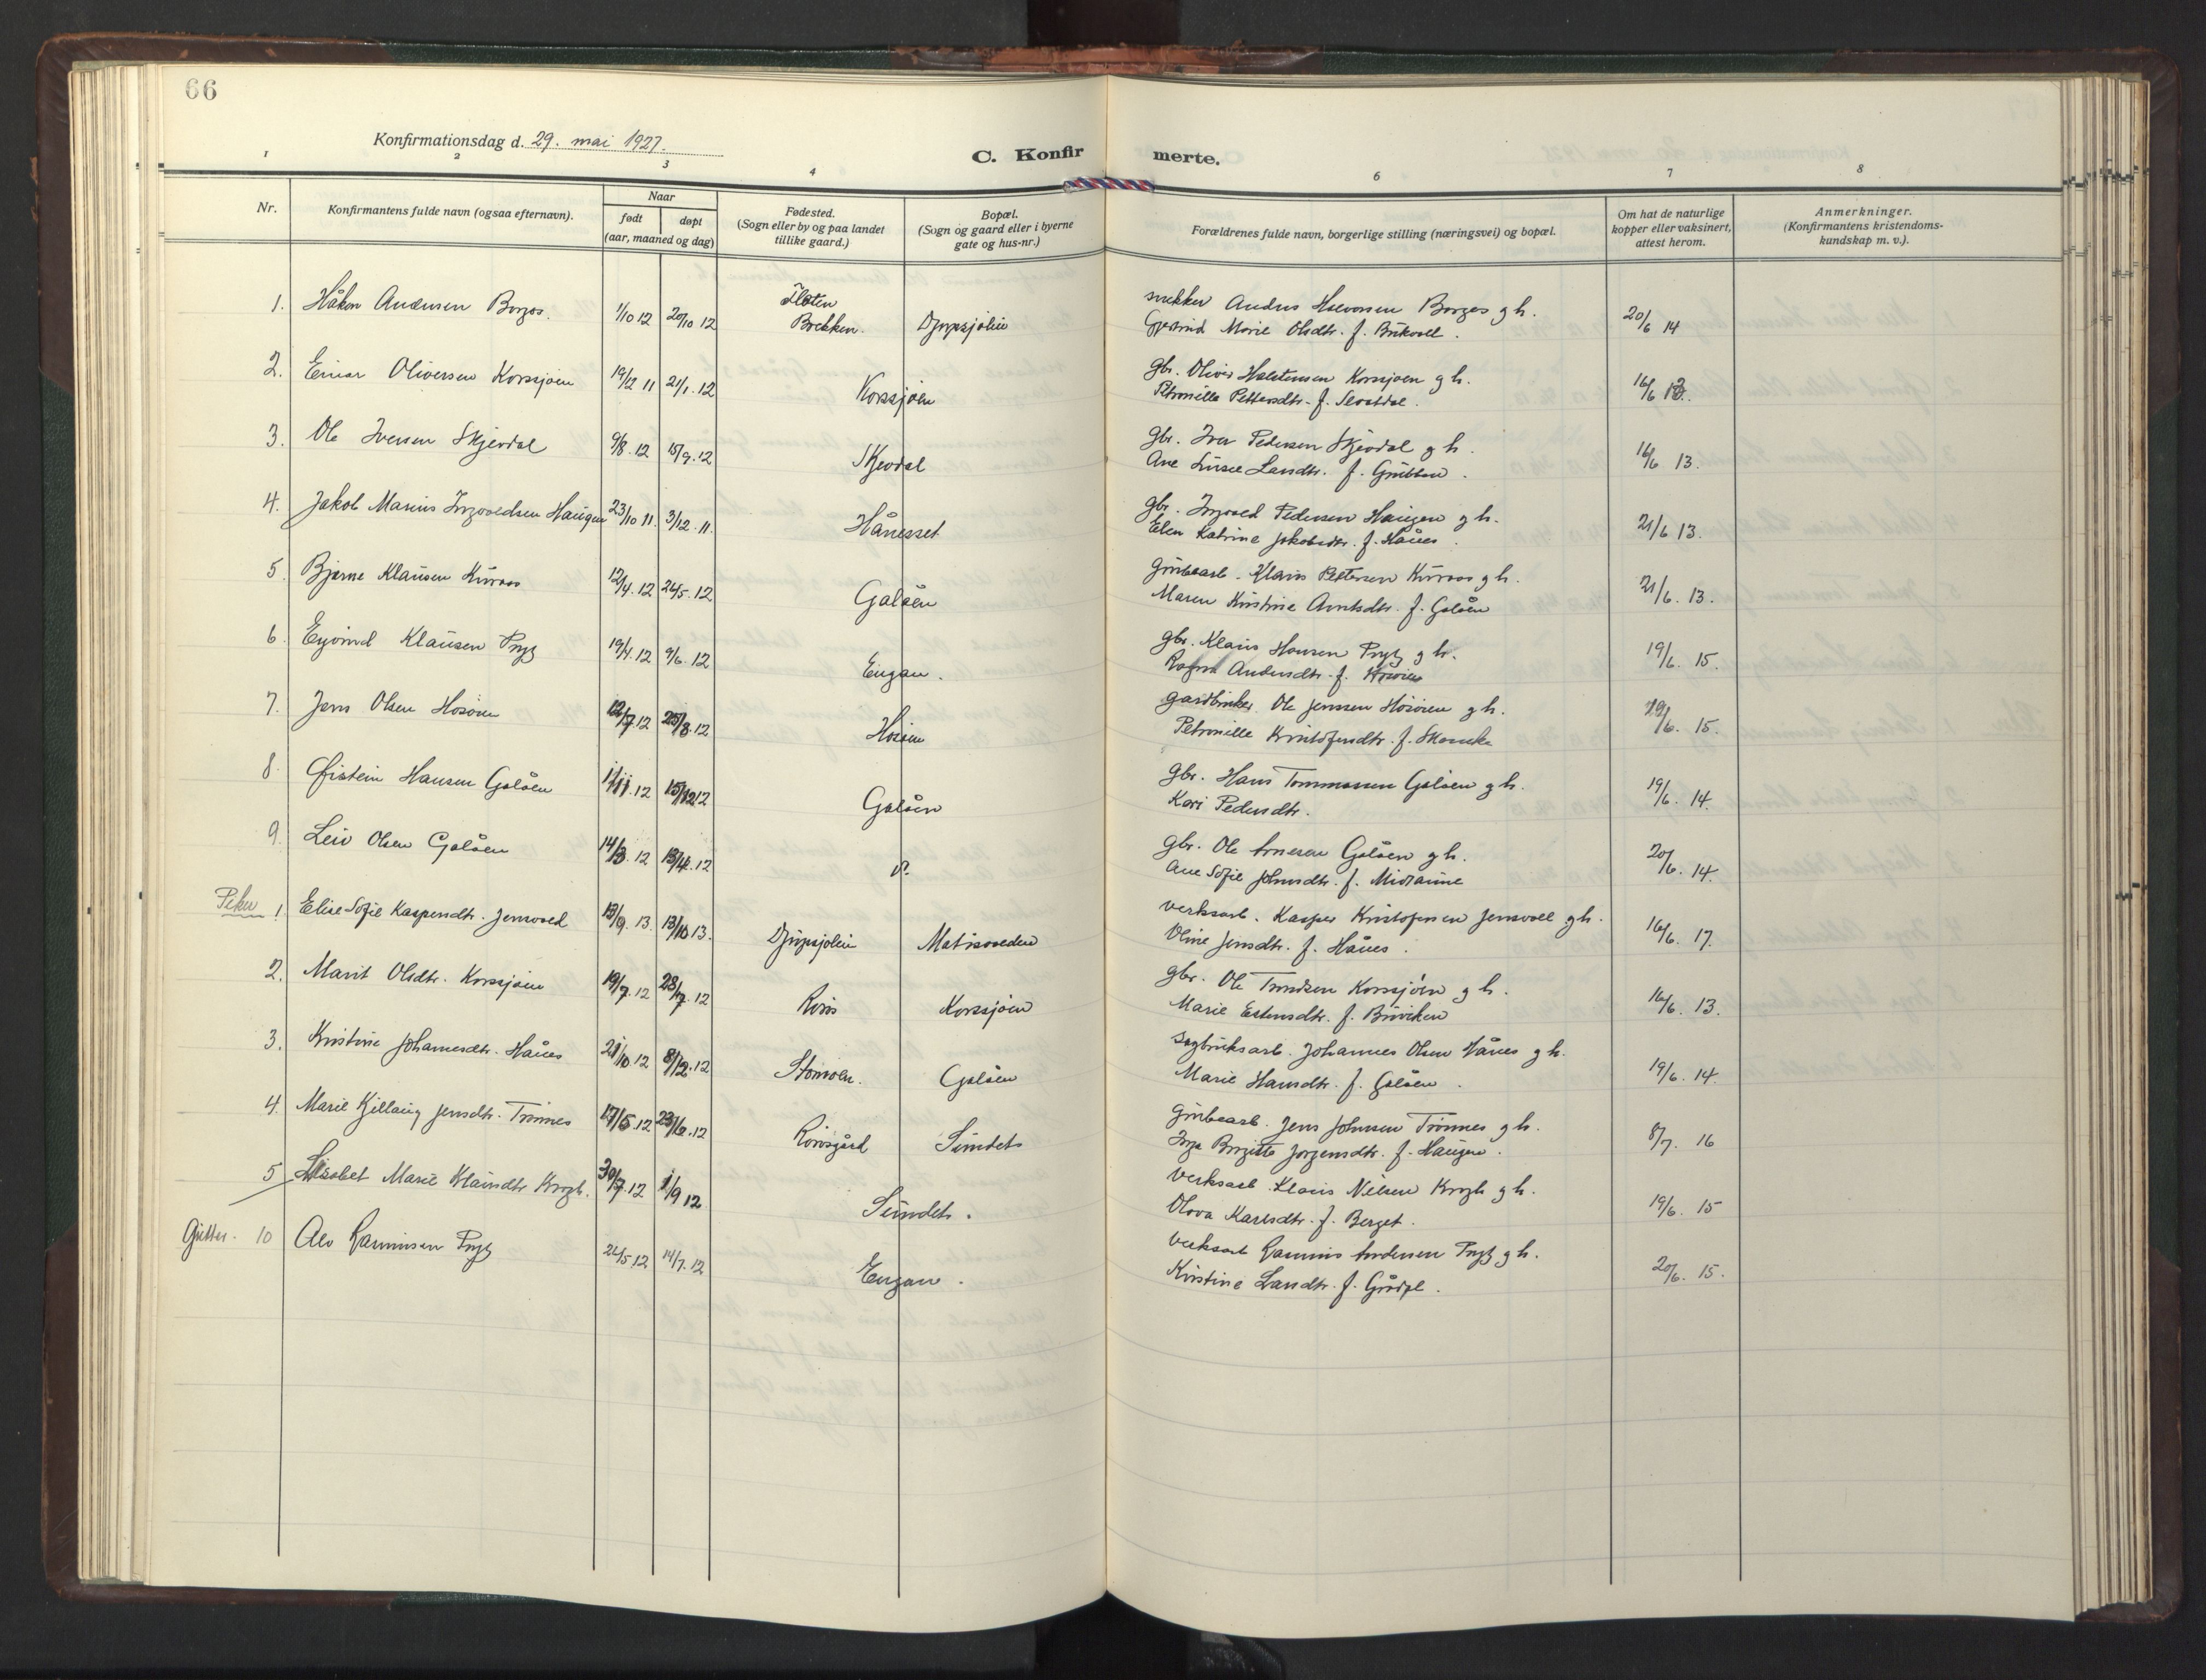 66
Konfirmationsdag d. 29. mai 1927.
C. Konfirmerte.
1 2 3 4 6 7 8
Nr.
Konfirmantens fulde navn (ogsaa efternavn).
Naar
født
døpt
(aar, maaned og dag)
Fødested.
(Sogn eller by og paa landet
tillike gaard.)
Bopæl.
(Sogn og gaard eller i byerne
gate og hus-nr.)
Forældrenes fulde navn, borgerlige stilling (næringsvei) og bopæl.
Om hat de naturlige
kopper eller vaksinert,
attest herom.
Anmerkninger.
(Konfirmantens kristendoms-
kundskap m. v.).
1. Håkon Andersen Borgos. 1/10 12 20/10 12 Brekken. Djupsjølien snekker Anders Halvorsen Borgos g h. 20/6 14
Marie Olsdtr. f.
2. Einar Oliversen Korssjøen 19/12 11 21/1. 12 Korssjøen gbr. Oliver Halstensen Korssjøen g h. 16/6 13.
Petronille Pettersdtr. f.
3. Ole Iversen Skjevdal 9/8. 12 15/9. 12 Skjevdal gbr. Iver Pedersen Skjevdal g h. 16/6 13.
Ane f.
4. Jakob Marius Ingvaldsen Haugen 23/10 11. 3/12. 11. Hånesset gbr. Ingvald Pedersen Haugen g h. 21/6 13.
Elen Katrine Jakobsdtr. f. Hånes.
5. Bjarne Klausen Kuraas 12/4. 12 26/5. 12 Galåen grubearb. Klaus Pettersen Kuraas g h. 21/6. 13.
Maren Kristine Arntsdtr. f. Galåen
6. Eyvind Klausen Prytz 19/4. 12 9/6. 12 Engan. gbr. Klaus Hansen Prytz g h. 19/6. 15.
Ragna Andersdtr. f.
7. Jens Olsen Hosøien 12/7. 12 25/8. 12 Hosøien gardbruker Ole Jenssen Hosøien g h. 15.
Petronille Kristofersdtr. f.
8. Øistein Hansen Galåen 1/11. 12 15/12 12 Galåen gbr. Hans Tommassen Galåen g h. 19/6. 14.
Kari Pedersdtr.
9. Leiv Olsen Galåen 14/3. 12 13/4. 12 gbr. Ole Arnesen Galåen g h. 20/6. 14.
Ane Sofie Johnsdtr. f. Midtaune
Piker 1. Elise Sofie Kaspersdtr. Jensvold 13/9. 13. 13/10 13. Djupsjølien Matisvolden verksarb. Kasper Kristofersen Jensvoll g h. 16/6. 17.
Oline Jensdtr. f. Hånes.
2. Marit Olsdtr. Korssjøen 19/7. 12 28/7. 12 Røros Korssjøen gbr. Ole Trondsen Korssjøen g h. 16/6. 13.
Marie Estensdtr. f.
3. Kristine Johannesdtr. Hånes 21/10. 12 8/12. 12 Galåen sagbruksarb. Johannes Olsen Hånes g h. 19/6. 14.
Marie Hansdtr. f. Galåen.
4. Marie Jensdtr. Trønnes 17/5. 12 23/6. 12 Rørosgård Sundets grubearb. Jens Johnsen Trønnes g h. 8/7. 16
Inga Birgitte Jørgensdtr. f. Haugen.
5 Lisabet Marie Klausdtr Krogh. 30/7. 12 1/9 12 Sundets. verksarb. Klaus Nilsen Krogh g h. 19/6. 15
Olava Karlsdtr. f. Berget.
Gutter. 10 Alv Rasmusen Prytz 26/5. 12 14/7. 12 Engan. verksarb Rasmus Andersen Prytz g h. 20/6. 15.
Kristine f.